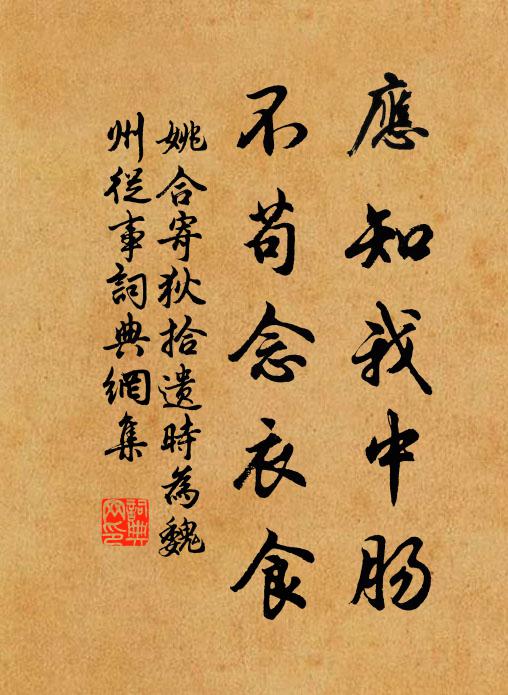 應知我中肠
不苟念衣食
姚合寄狄拾遺時為魏
州從事詞典網集
詞典
网印